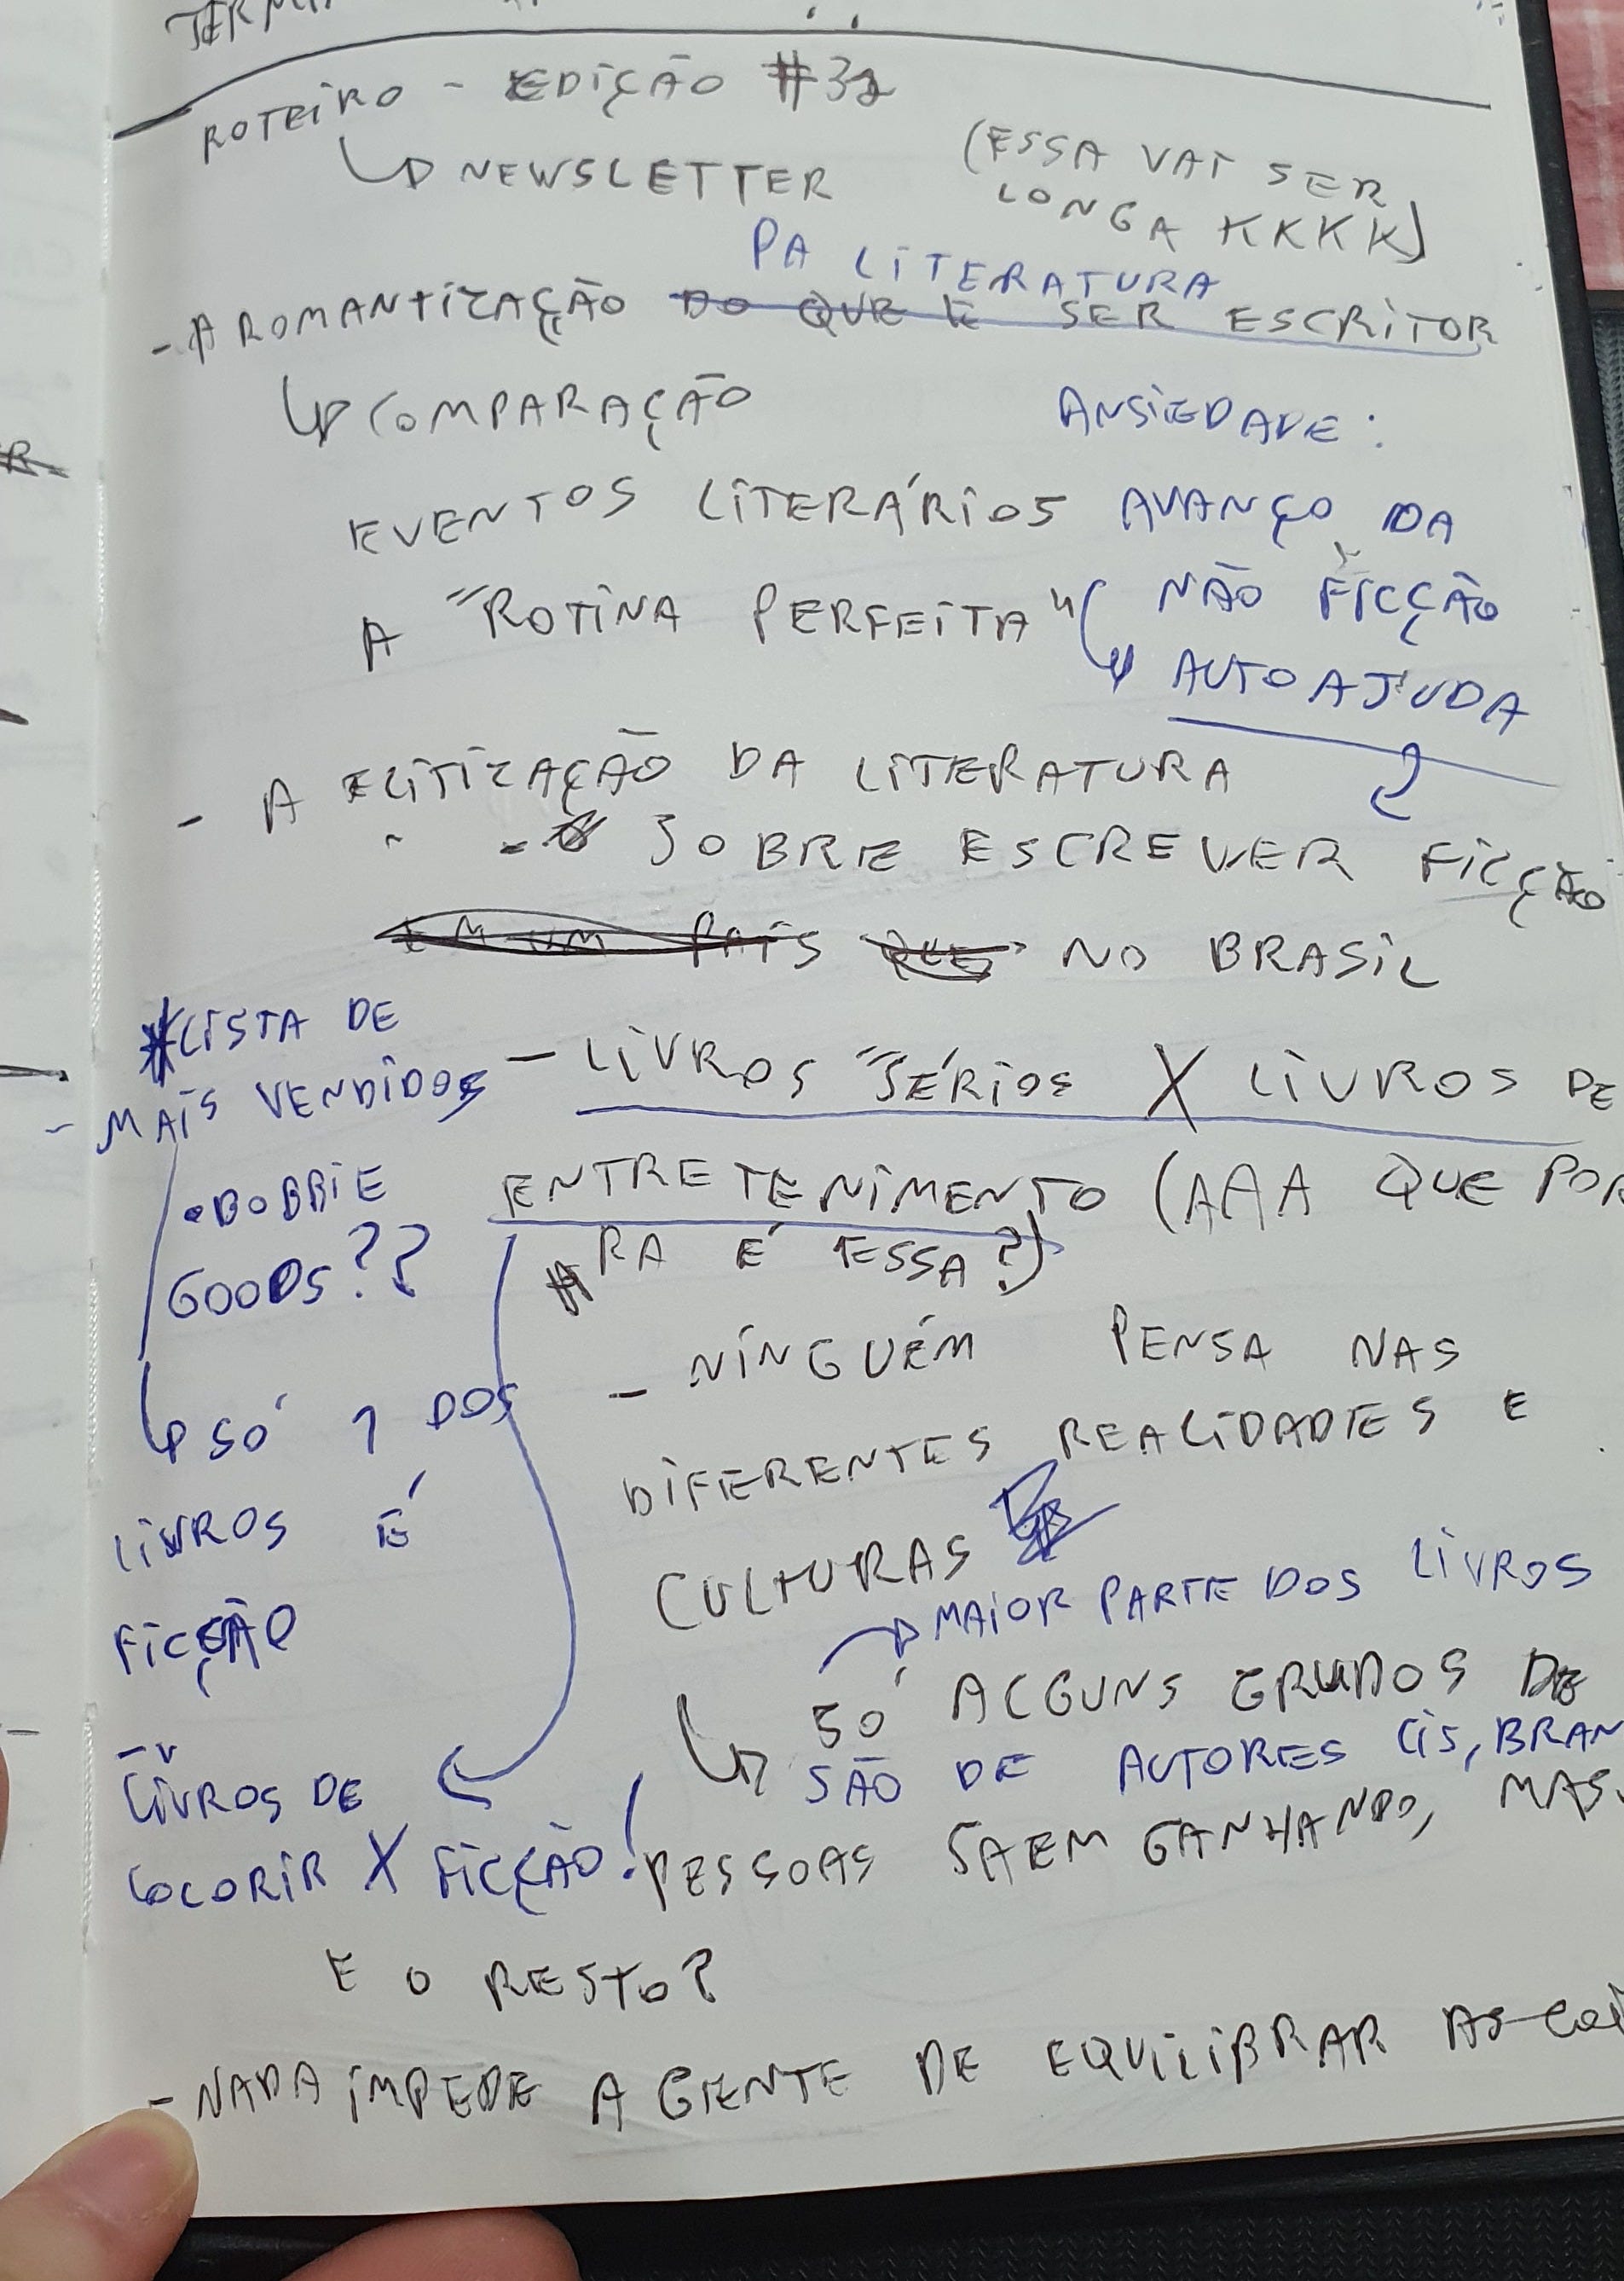 ROTEIRO - EDIÇÃO #32
↳ NEWSLETTER
(ESSA VAI SER
LONGA KKKK)
DA LITERATURA
- A ROMANTIZAÇÃO DO QUE É SER ESCRITOR
↳ COMPARAÇÃO
EVENTOS LITERÁRIOS
A "ROTINA PERFEITA"
ANSIEDADE:
AVANÇO DA
NÃO FICÇÃO
↳ AUTOAJUDA
- A ELITIZAÇÃO DA LITERATURA
- SOBRE ESCREVER FICÇÃO
EM UM PAÍS QUE NO BRASIL
- LIVROS "SÉRIOS X LIVROS DE
ENTRETENIMENTO (AAA QUE POR
RA É ESSA?)
*LISTA DE
- MAIS VENDIDOS
• BOBBIE
GOODS??
↳ SÓ 1 DOS
LIVROS É
FICÇÃO
- LIVROS DE
COLORIR X FICÇÃO!
- NINGUÉM PENSA NAS
DIFERENTES REALIDADES E
CULTURAS
→ MAIOR PARTE DOS LIVROS
SÃO DE AUTORES CIS, BRAN
↳ SÓ ALGUNS GRUPOS DE
PESSOAS SAEM GANHANDO, MAS
E O RESTO?
- NADA IMPEDE A GENTE DE EQUILIBRAR AS COI